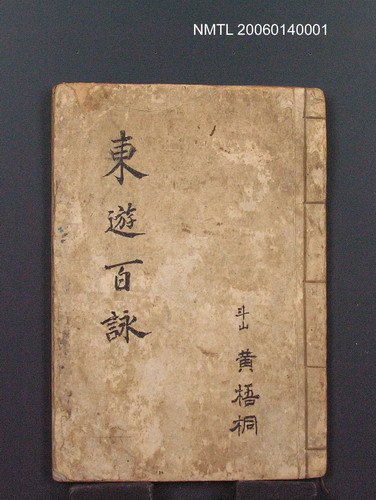 NMTL 20060140001
東遊百詠
斗山 黄梧桐